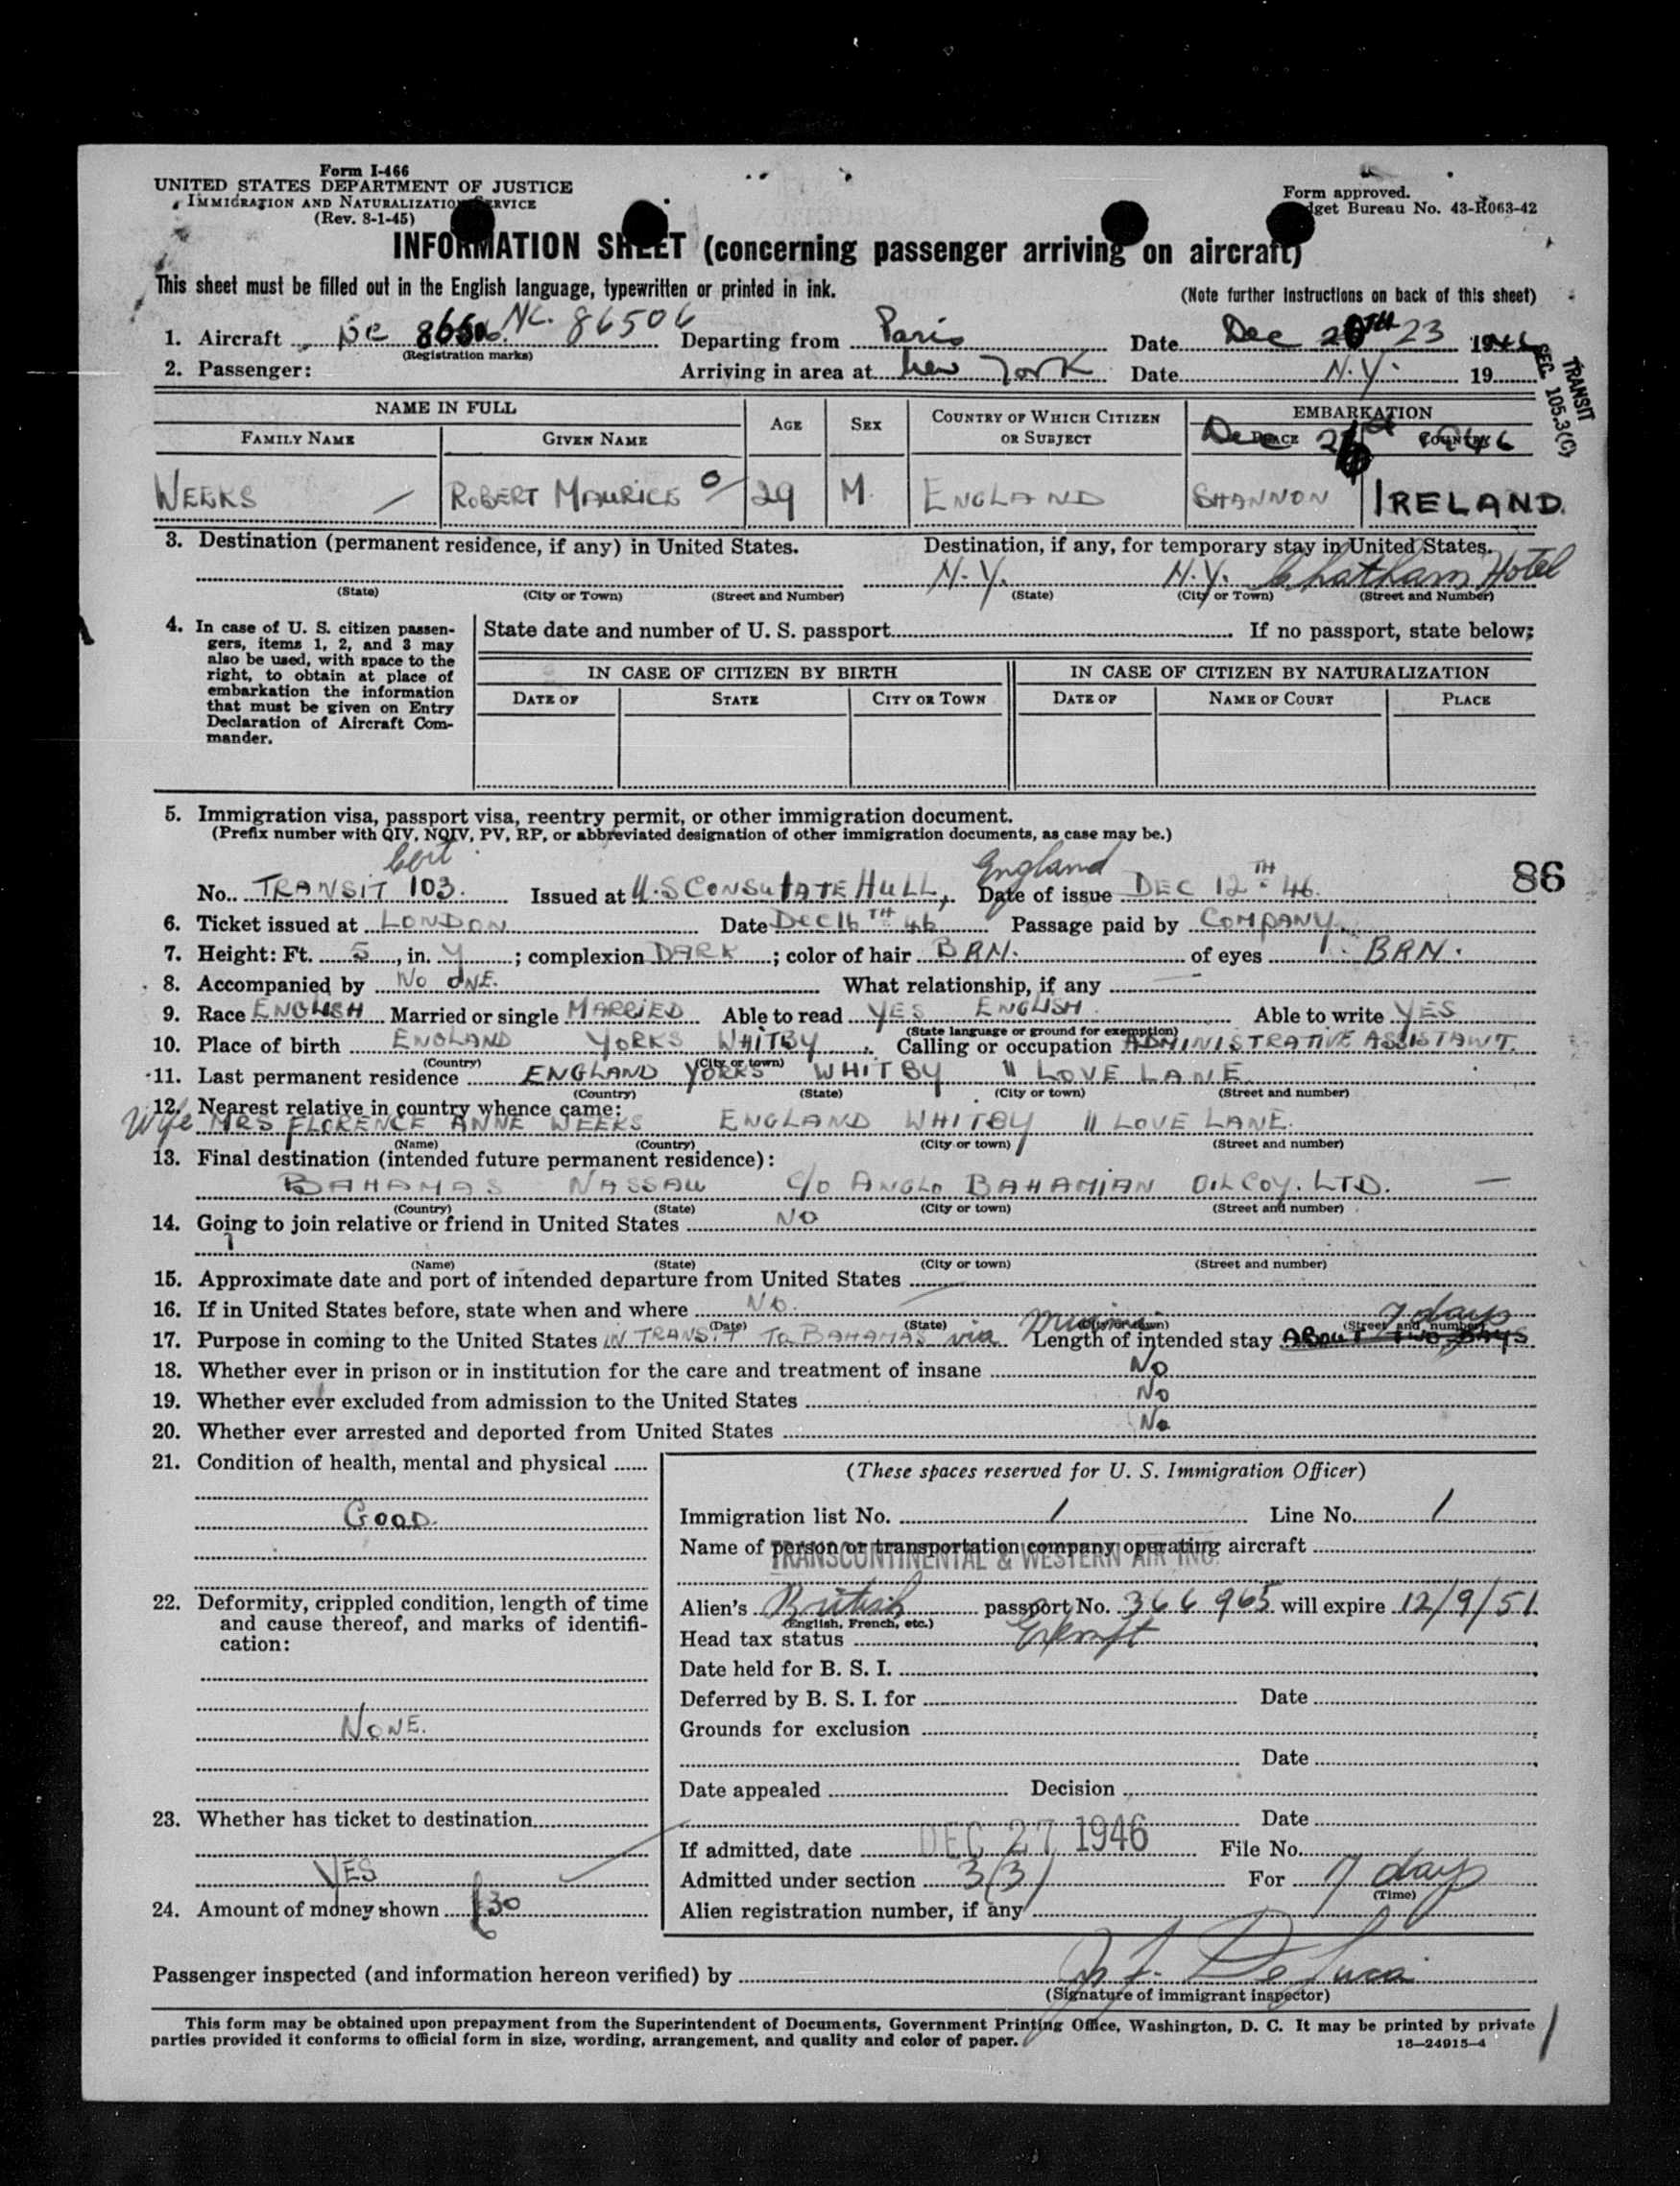 Form I-466
UNITED STATES DEPARTMENT OF JUSTICE
IMMIGRATION AND NATURALIZATION SERVICE
(Rev. 8-1-45)
Form approved.
Budget Bureau No. 43-R063-42
INFORMATION SHEET (concerning passenger arriving on aircraft)
This sheet must be filled out in the English language, typewritten or printed in ink.
(Note further instructions on back of this sheet)
1. Aircraft NC. 86506 Departing from Paris Date Dec 23 1946
(Registration marks)
2. Passenger: Arriving in area at New York Date N.Y. 19
TRANSIT
SEC. 105.3(C)
NAME IN FULL AGE SEX COUNTRY OF WHICH CITIZEN OR SUBJECT EMBARKATION
FAMILY NAME GIVEN NAME PLACE COUNTRY
Dec 1946
WEEKS ROBERT MAURICE 29 M. ENGLAND SHANNON IRELAND.
3. Destination (permanent residence, if any) in United States. Destination, if any, for temporary stay in United States.
N.Y. N.Y. Chatham Hotel
(State) (City or Town) (Street and Number) (State) (City or Town) (Street and Number)
4. In case of U. S. citizen passengers, items 1, 2, and 3 may also be used, with space to the right, to obtain at place of embarkation the information that must be given on Entry Declaration of Aircraft Commander.
State date and number of U. S. passport If no passport, state below:
IN CASE OF CITIZEN BY BIRTH IN CASE OF CITIZEN BY NATURALIZATION
DATE OF STATE CITY OR TOWN DATE OF NAME OF COURT PLACE
5. Immigration visa, passport visa, reentry permit, or other immigration document.
(Prefix number with QIV, NQIV, PV, RP, or abbreviated designation of other immigration documents, as case may be.)
Cert England
No. TRANSIT 103. Issued at U.S CONSULATE HULL, Date of issue DEC 12TH 46.
86
6. Ticket issued at LONDON Date DEC 16TH 46 Passage paid by COMPANY.
7. Height: Ft. 5, in. ; complexion DARK; color of hair BRN. of eyes BRN.
8. Accompanied by NO ONE. What relationship, if any
9. Race ENGLISH Married or single MARRIED Able to read YES ENGLISH Able to write YES
(State language or ground for exemption)
10. Place of birth ENGLAND YORKS WHITBY. Calling or occupation ADMINISTRATIVE ASSISTANT.
(Country) (City or town)
11. Last permanent residence ENGLAND YORKS WHITBY 11 LOVE LANE
(Country) (State) (City or town) (Street and number)
12. Nearest relative in country whence came:
Wife MRS FLORENCE ANNE WEEKS ENGLAND WHITBY 11 LOVE LANE.
(Name) (Country) (City or town) (Street and number)
13. Final destination (intended future permanent residence):
BAHAMAS NASSAU C/O ANGLO BAHAMIAN OIL COY. LTD. —
(Country) (State) (City or town) (Street and number)
14. Going to join relative or friend in United States NO
(Name) (State) (City or town) (Street and number)
15. Approximate date and port of intended departure from United States
16. If in United States before, state when and where NO.
(Date) (State) (City or town) (Street and number)
7 days
17. Purpose in coming to the United States IN TRANSIT TO BAHAMAS via Miami Length of intended stay ABOUT TWO DAYS
18. Whether ever in prison or in institution for the care and treatment of insane No
19. Whether ever excluded from admission to the United States No
20. Whether ever arrested and deported from United States No
21. Condition of health, mental and physical
GOOD.
(These spaces reserved for U. S. Immigration Officer)
Immigration list No. 1 Line No. 1
Name of person or transportation company operating aircraft
TRANSCONTINENTAL & WESTERN AIR INC.
22. Deformity, crippled condition, length of time and cause thereof, and marks of identification:
NONE.
Alien's British passport No. 366965 will expire 12/9/51
(English, French, etc.)
Head tax status Exempt
Date held for B. S. I.
Deferred by B. S. I. for Date
Grounds for exclusion
Date
Date appealed Decision
23. Whether has ticket to destination
YES
Date
If admitted, date DEC 27 1946 File No.
Admitted under section 3(3) For 7 days
(Time)
24. Amount of money shown £30
Alien registration number, if any
Passenger inspected (and information hereon verified) by De Luca
(Signature of immigrant inspector)
This form may be obtained upon prepayment from the Superintendent of Documents, Government Printing Office, Washington, D. C. It may be printed by private
parties provided it conforms to official form in size, wording, arrangement, and quality and color of paper.
16—24915-4